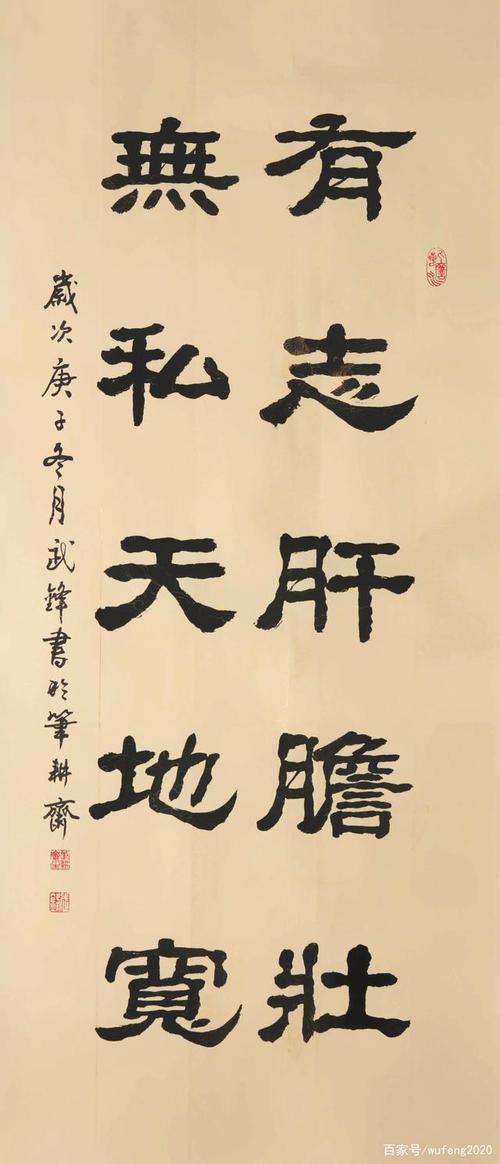 有志肝膽壯
無私天地寬
歲次庚子冬月武鋒書於筆耕齋
百家号/wufeng2020